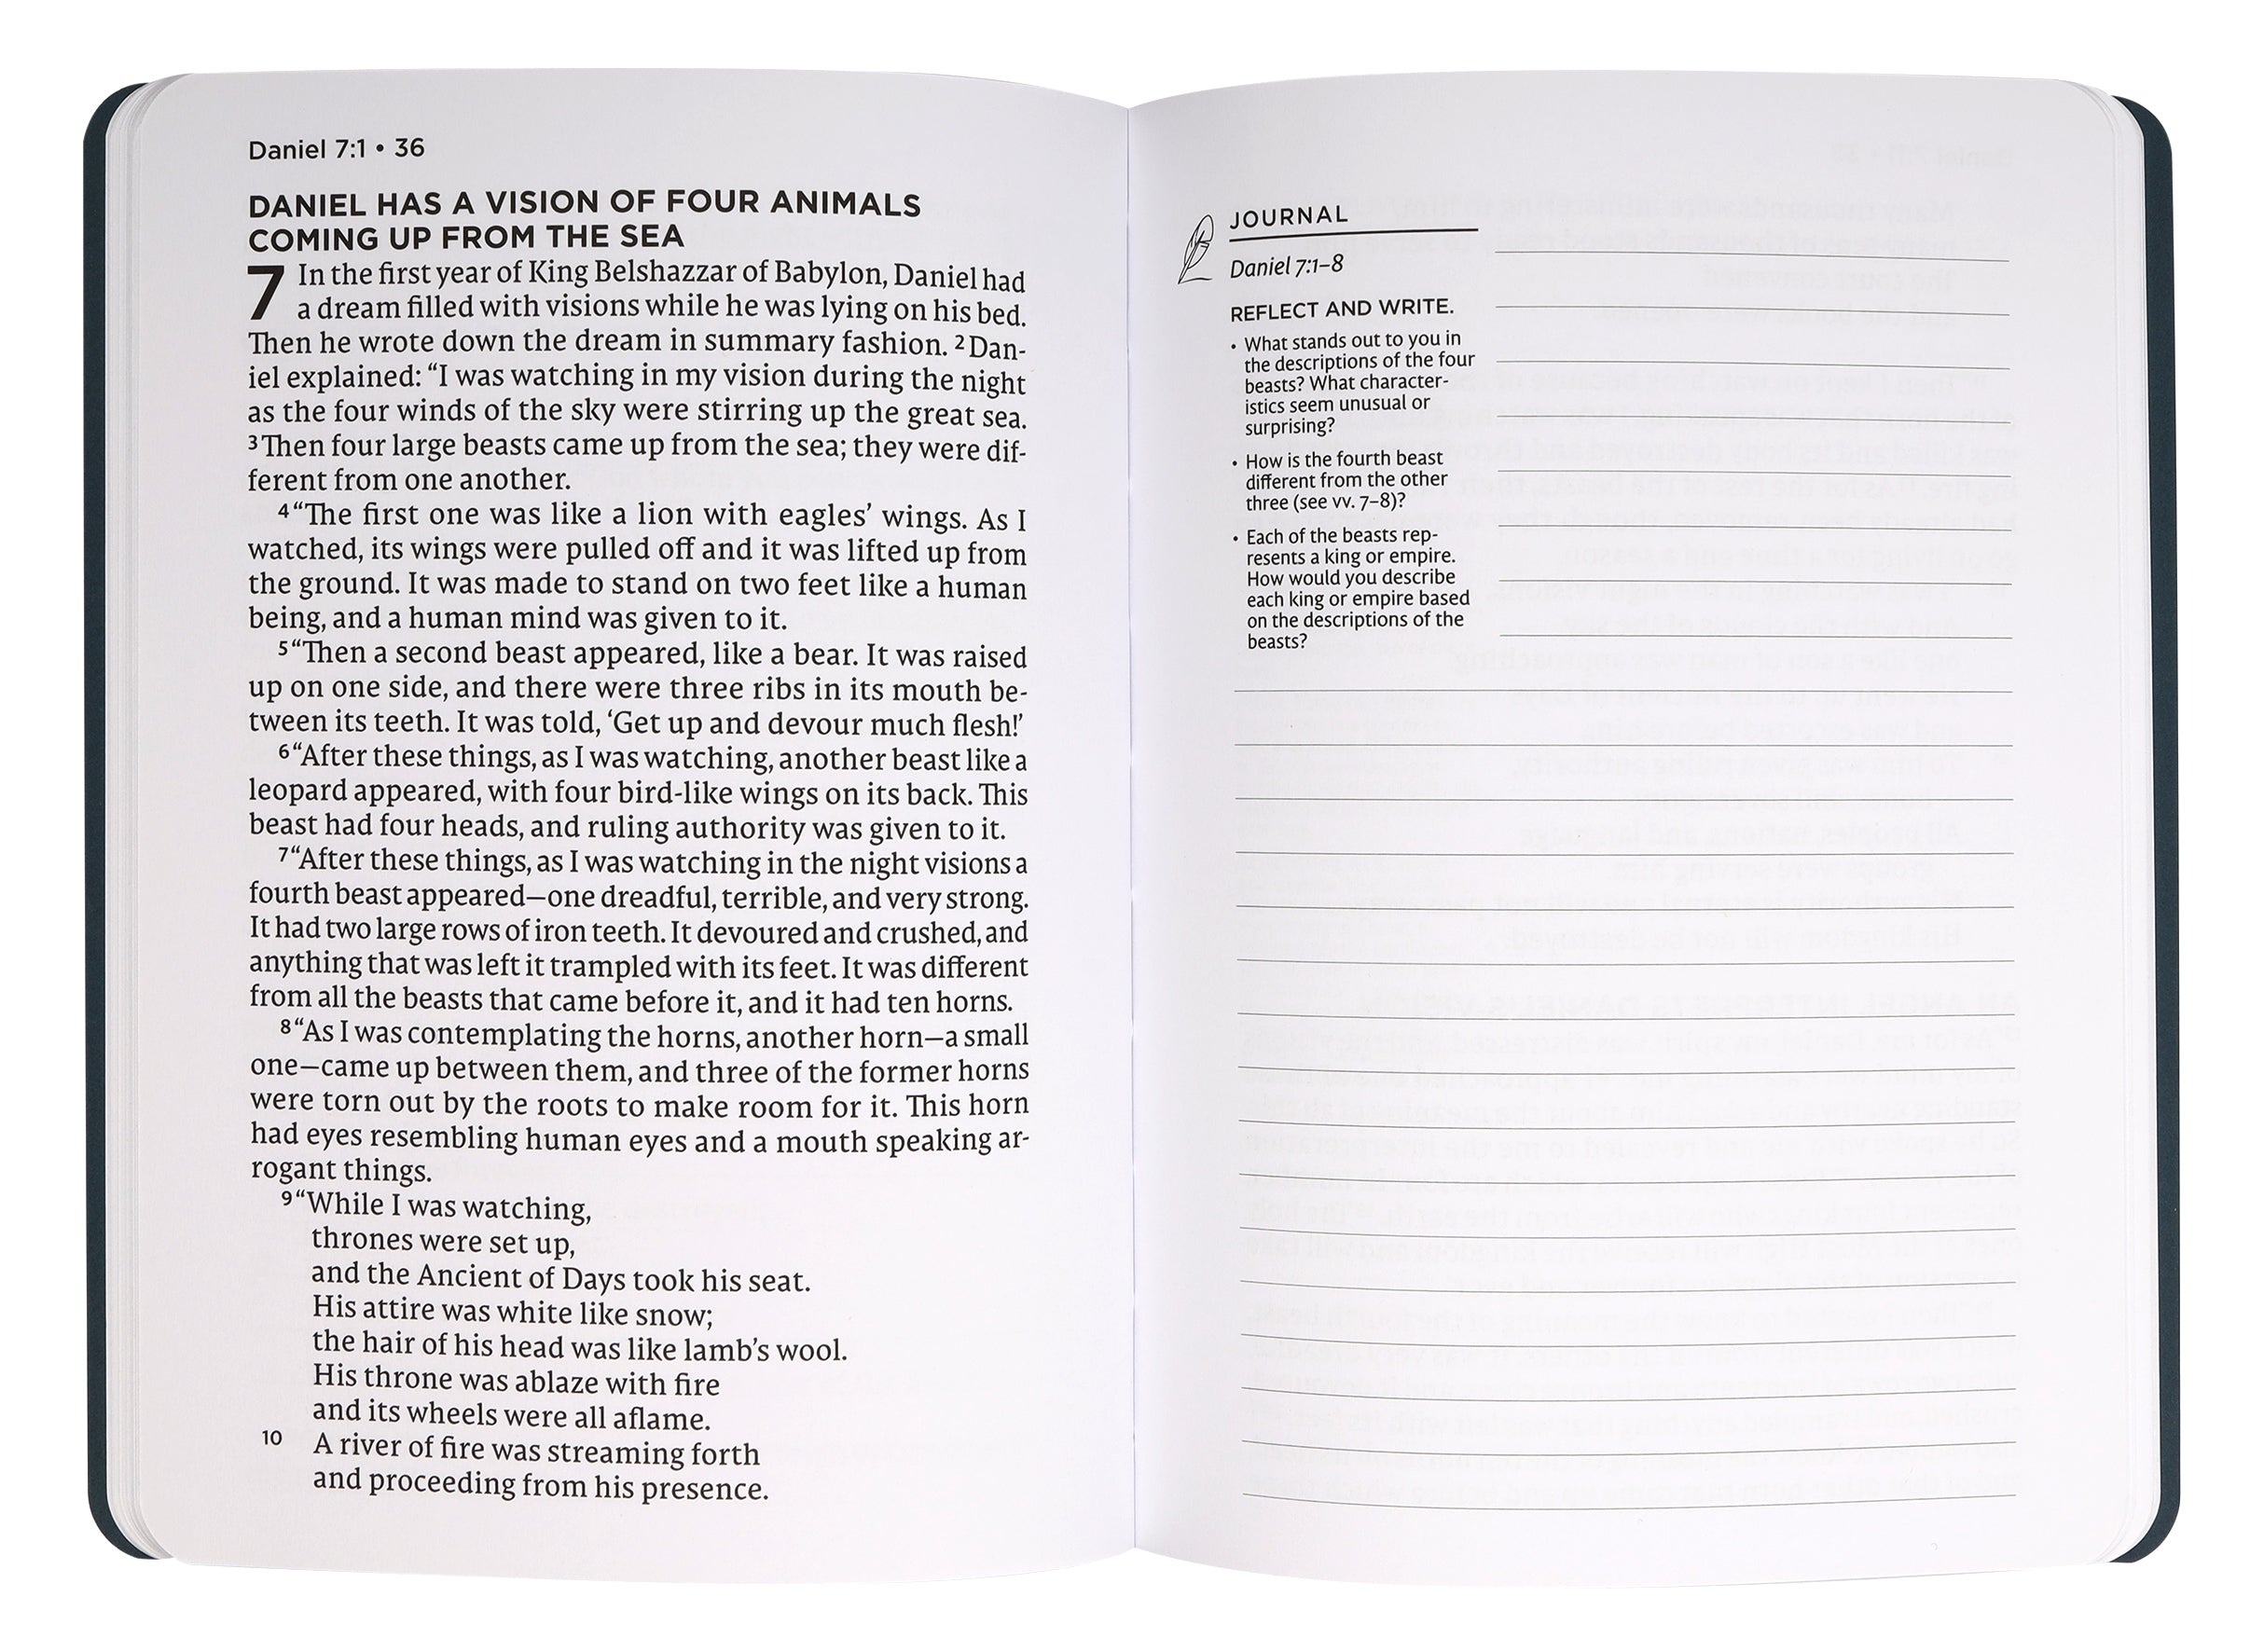 Daniel 7:1 • 36
DANIEL HAS A VISION OF FOUR ANIMALS
COMING UP FROM THE SEA
7 In the first year of King Belshazzar of Babylon, Daniel had
a dream filled with visions while he was lying on his bed.
Then he wrote down the dream in summary fashion. 2 Dan-
iel explained: “I was watching in my vision during the night
as the four winds of the sky were stirring up the great sea.
3 Then four large beasts came up from the sea; they were dif-
ferent from one another.
4 “The first one was like a lion with eagles’ wings. As I
watched, its wings were pulled off and it was lifted up from
the ground. It was made to stand on two feet like a human
being, and a human mind was given to it.
5 “Then a second beast appeared, like a bear. It was raised
up on one side, and there were three ribs in its mouth be-
tween its teeth. It was told, ‘Get up and devour much flesh!’
6 “After these things, as I was watching, another beast like a
leopard appeared, with four bird-like wings on its back. This
beast had four heads, and ruling authority was given to it.
7 “After these things, as I was watching in the night visions a
fourth beast appeared—one dreadful, terrible, and very strong.
It had two large rows of iron teeth. It devoured and crushed, and
anything that was left it trampled with its feet. It was different
from all the beasts that came before it, and it had ten horns.
8 “As I was contemplating the horns, another horn—a small
one—came up between them, and three of the former horns
were torn out by the roots to make room for it. This horn
had eyes resembling human eyes and a mouth speaking ar-
rogant things.
9 “While I was watching,
thrones were set up,
and the Ancient of Days took his seat.
His attire was white like snow;
the hair of his head was like lamb’s wool.
His throne was ablaze with fire
and its wheels were all aflame.
10 A river of fire was streaming forth
and proceeding from his presence.
JOURNAL
Daniel 7:1–8
REFLECT AND WRITE.
• What stands out to you in
the descriptions of the four
beasts? What character-
istics seem unusual or
surprising?
• How is the fourth beast
different from the other
three (see vv. 7–8)?
• Each of the beasts rep-
resents a king or empire.
How would you describe
each king or empire based
on the descriptions of the
beasts?